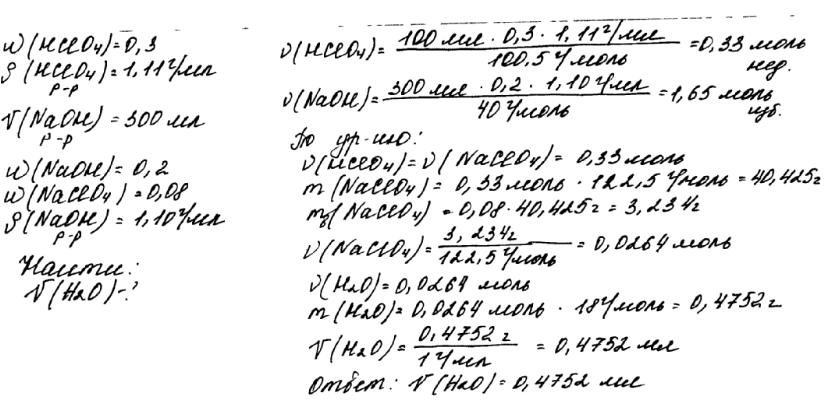 ω(HClO₄)=0,3
ρ(HClO₄)=1,11г/мл
р-р
V(NaOH)=300 мл
р-р
ω(NaOH)=0,2
ω(NaClO₄)=0,08
ρ(NaOH)=1,10г/мл
р-р
Найти:
V(H₂O)-?
ν(HClO₄)= 100 мл · 0,3 · 1,11г/мл / 100,5 г/моль =0,33 моль
нед.
ν(NaOH)= 300 мл · 0,2 · 1,10 г/мл / 40 г/моль = 1,65 моль
изб.
По ур-ию:
ν(HClO₄)=ν(NaClO₄)= 0,33 моль
m(NaClO₄)= 0,33 моль · 122,5 г/моль = 40,425г
m₃(NaClO₄)=0,08·40,425г = 3,234г
ν(NaClO₄)= 3,234г / 122,5 г/моль = 0,0264 моль
ν(H₂O)=0,0264 моль
m(H₂O)= 0,0264 моль · 18г/моль = 0,4752г
V(H₂O)= 0,4752 г / 1 г/мл = 0,4752 мл
Ответ: V(H₂O)=0,4752 мл